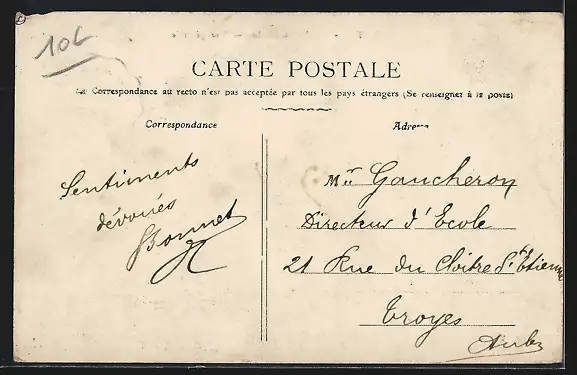 10c
CARTE POSTALE
La Correspondance au recto n'est pas acceptée par tous les pays étrangers (Se renseigner à la poste)
Correspondance
Adresse
Sentiments
dévoués
Bonnet
Mr Gaucheron
Directeur d'Ecole
21 Rue du Cloitre St Etienne
Troyes
Aube